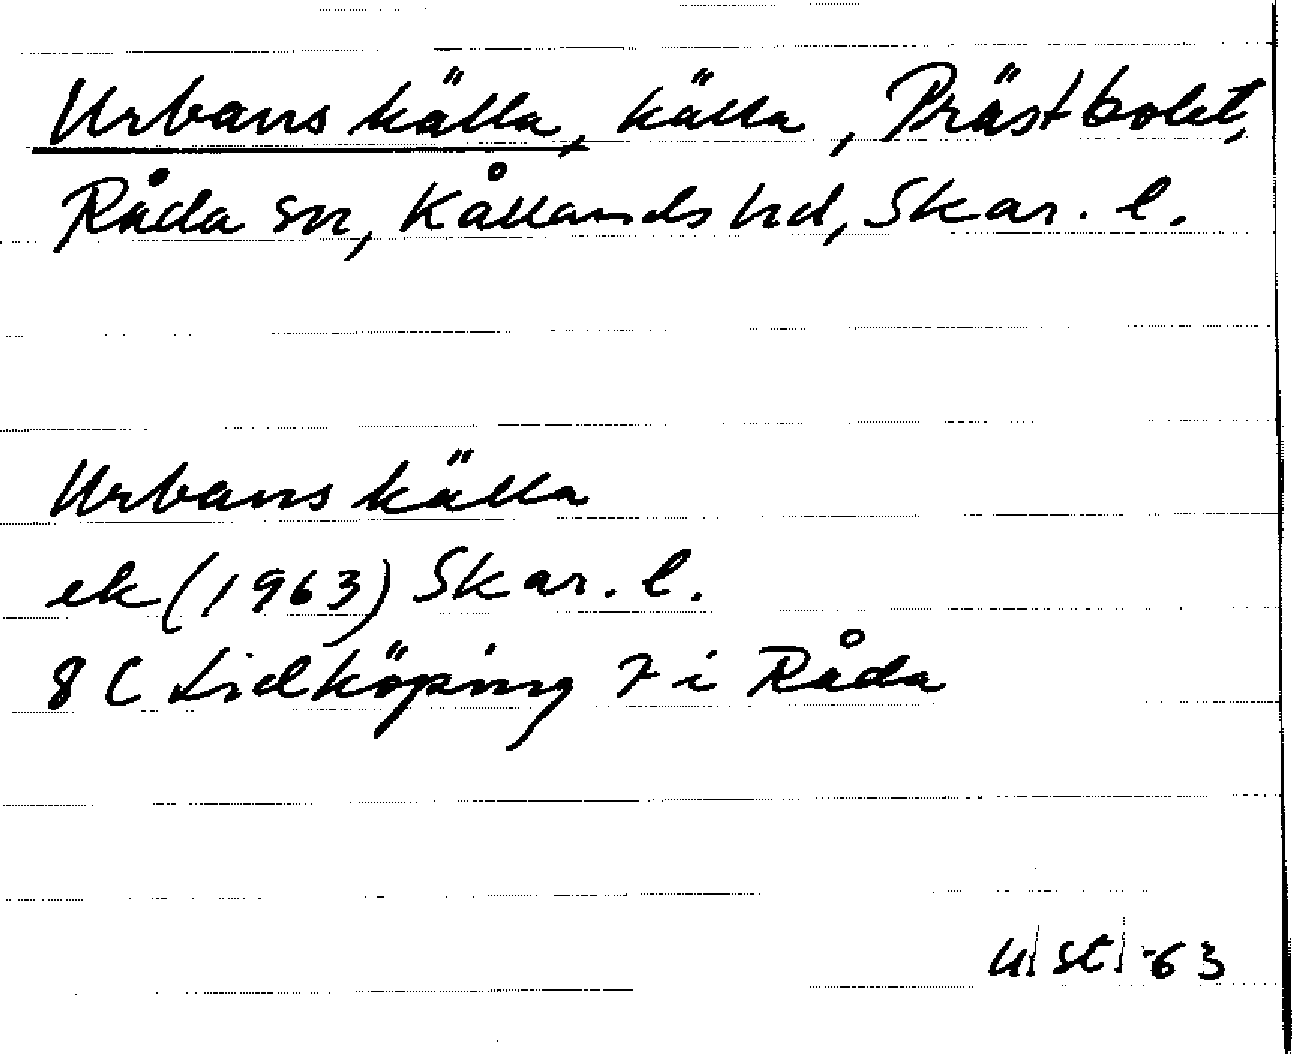 Urbans källa, källa, Prästbolet,
Råda sn, Kållands hd, Skar. l.
Urbans källa
ek (1963) Skar. l.
8 C Lidköping 7 i Råda
u/st/-63